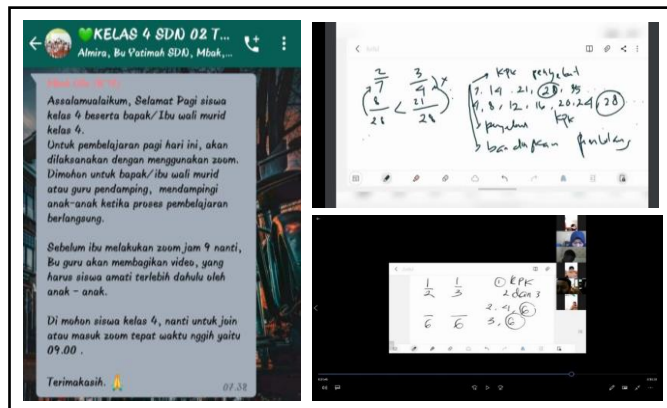 KELAS 4 SDN 02 T...
Almira, Bu Yatimah SDN, Mbak,...
Assalamualaikum, Selamat Pagi siswa
kelas 4 beserta bapak/Ibu wali murid
kelas 4.
Untuk pembelajaran pagi hari ini, akan
dilaksanakan dengan menggunakan zoom.
Dimohon untuk bapak/ibu wali murid
atau guru pendamping, mendampingi
anak-anak ketika proses pembelajaran
berlangsung.
Sebelum ibu melakukan zoom jam 9 nanti,
Bu guru akan membagikan video, yang
harus siswa amati terlebih dahulu oleh
anak - anak.
Di mohon siswa kelas 4, nanti untuk join
atau masuk zoom tepat waktu nggih yaitu
09.00 .
Terimakasih. 🙏
07.38
2/7 3/4 x
8/28 < 21/28
KPK penyebut
7, 14, 21, 28, 35
4, 8, 12, 16, 20, 24, 28
penyebut KPK
bandingkan pembilang
1/2 1/3
6 6
① KPK
2 dan 3
2, 4, 6
3, 6